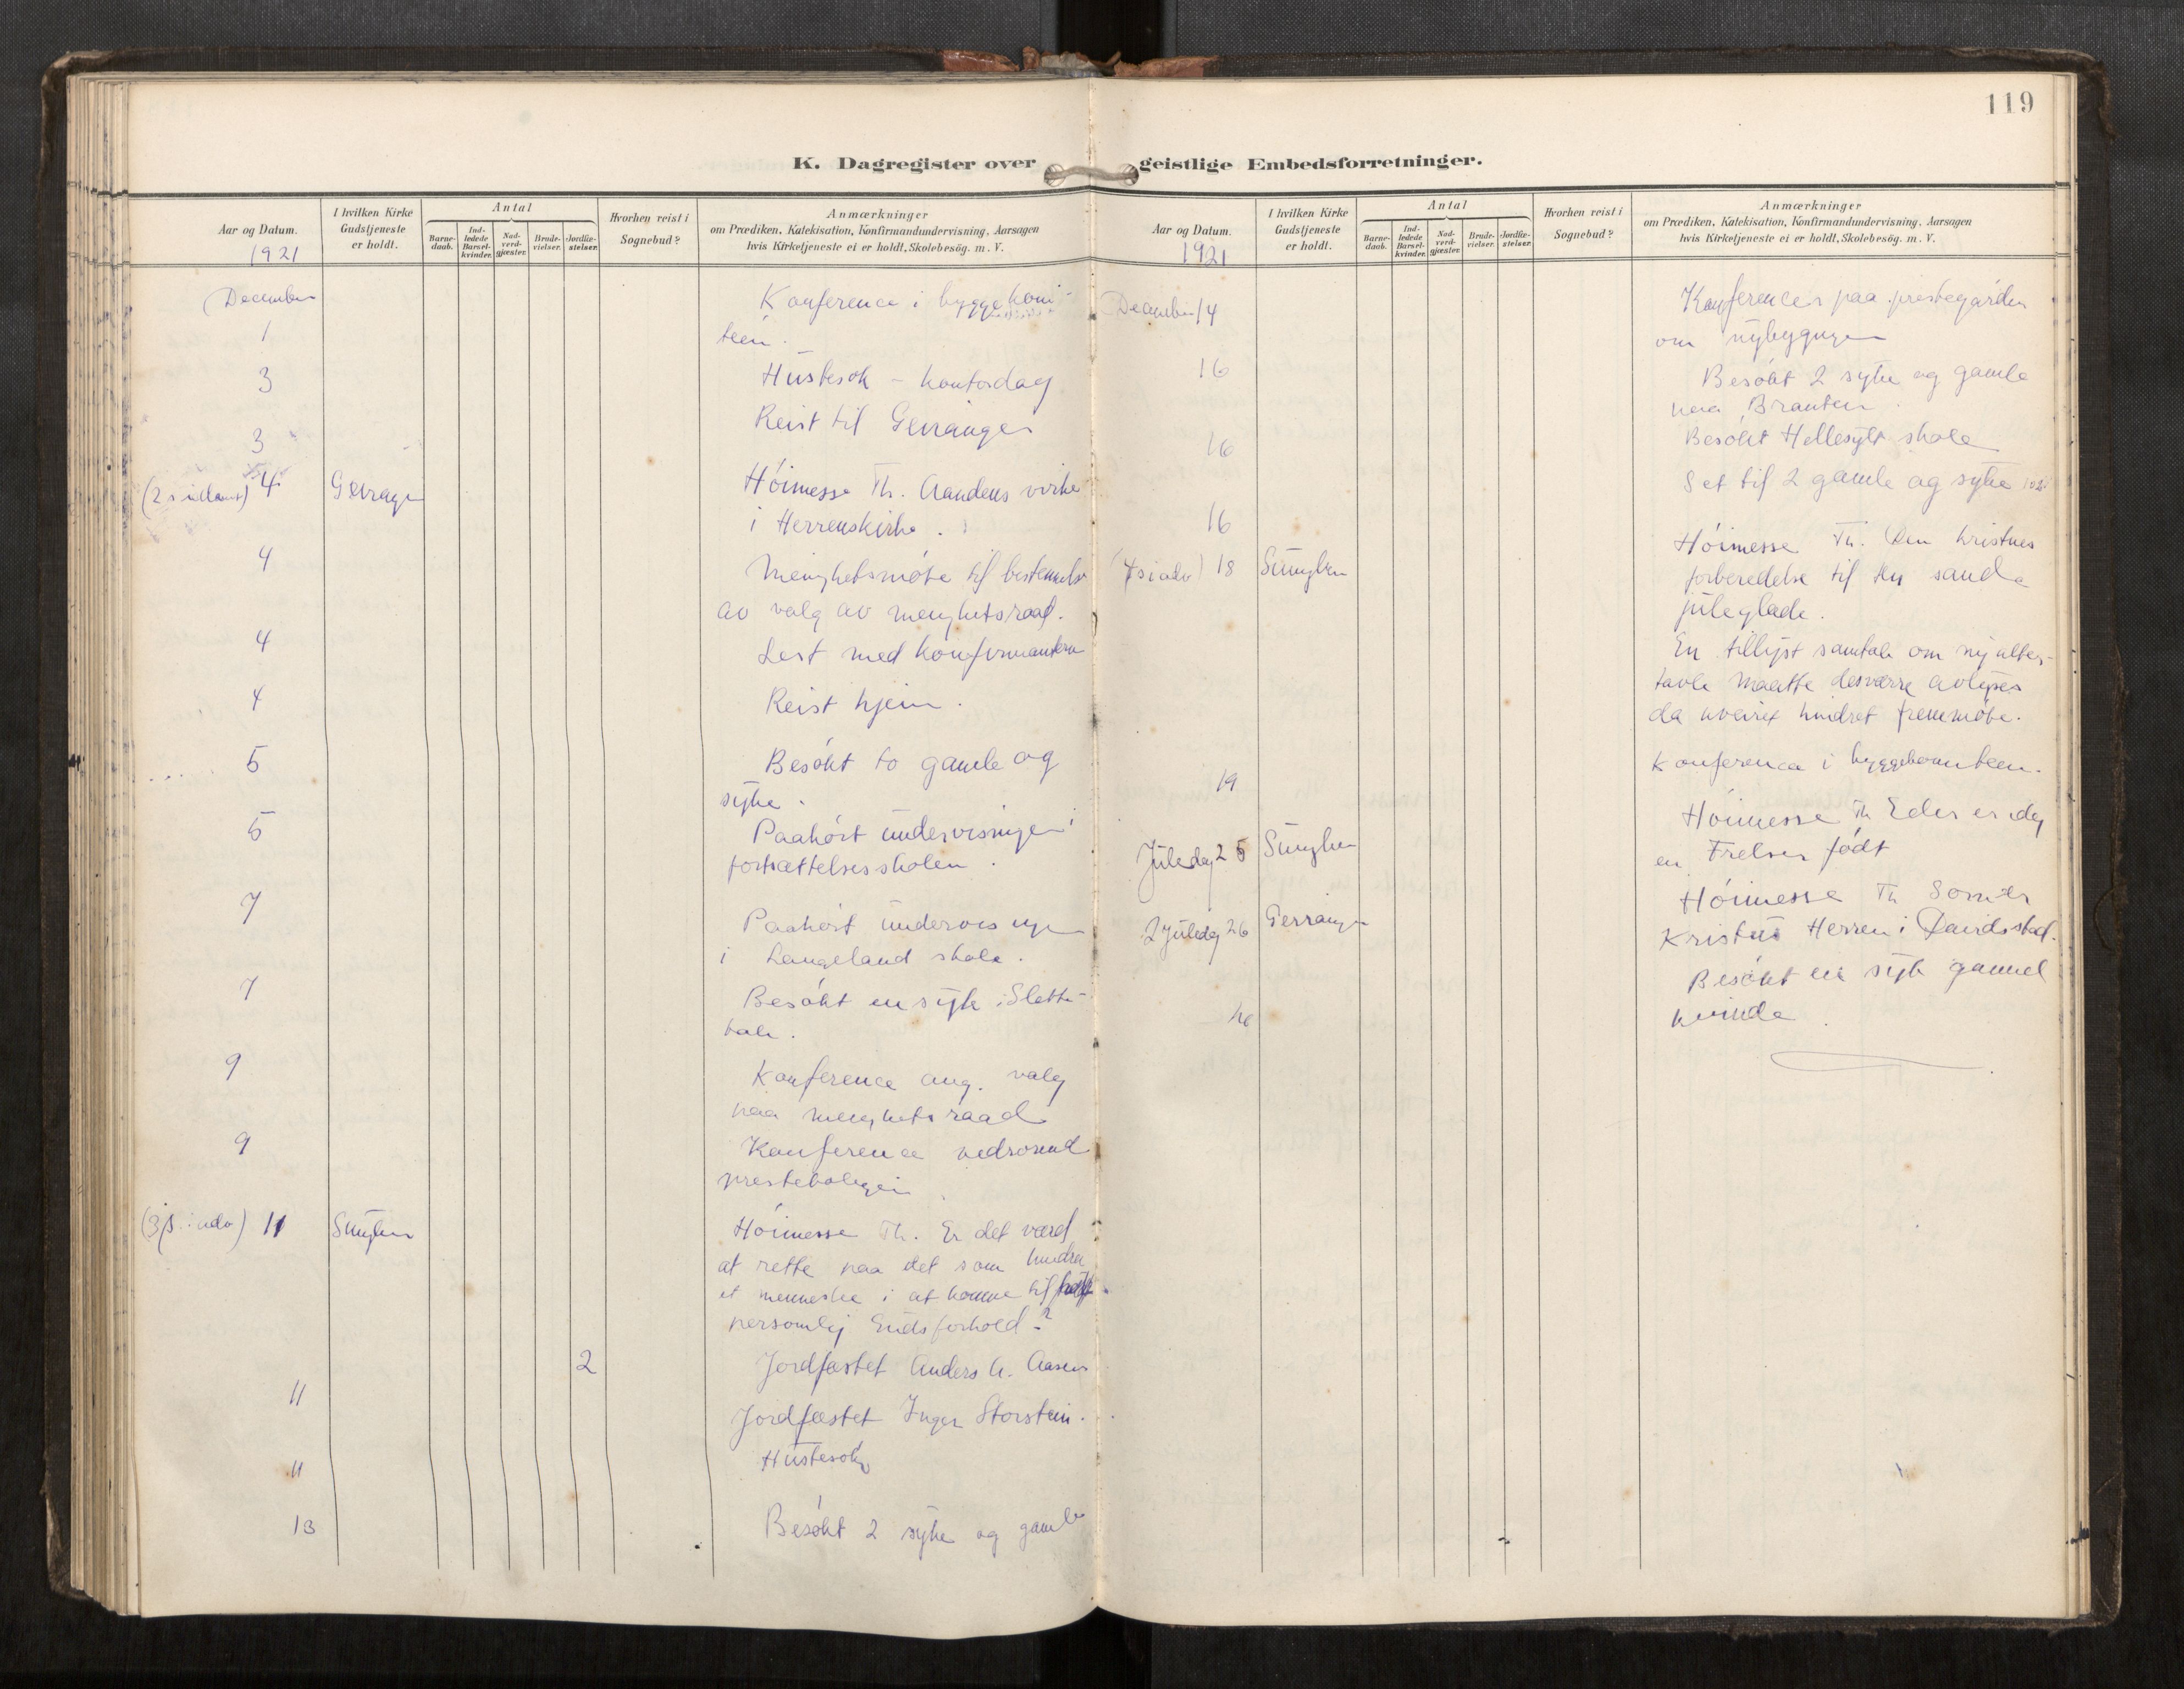 119
K. Dagregister over geistlige Embedsforretninger.
Aar og Datum.
1921
I hvilken Kirke Gudstjeneste er holdt.
Antal
Barnedaab.
Indledede Barselkvinder.
Nadverdgjæster.
Brudevielser.
Jordfæstelser.
Hvorhen reist i Sognebud?
Anmærkninger
om Prædiken, Katekisation, Konfirmandundervisning, Aarsagen
hvis Kirketjeneste ei er holdt, Skolebesög. m. V.
December
1
Konference i byggekomi-
teen.
3 Husbesøk - kontordag
3 Reist til Geiranger
(2 s i advent) 4 Geiranger Høimesse Th. Aandens virke
i Herrens kirke.
4 Menighetsmøte til bestemmelse
av valg av menighetsraad.
4 Lest med konfirmantene
4 Reist hjem.
5 Besøkt to gamle og
syke.
5 Paahørt undervisningen i
fortsættelsesskolen.
7 Paahørt undervisningen
i Langeland skole.
7 Besøkt en syk i Slette-
9 Konference ang. valg
paa menighetsraad
9 Konference vedrørend
presteboligen
(3 s. i adv) 11 Sunylven Høimesse Th. Er det værd
at rette paa det som hindrer
et menneske i at komme til
personlig Gudsforhold?
11 2 Jordfæstet Anders A. Aasen
Jordfæstet Inger Storstein.
11 Husbesøk
13 Besøkt 2 syke og gamle
Aar og Datum.
1921
I hvilken Kirke Gudstjeneste er holdt.
Antal
Barnedaab.
Indledede Barselkvinder.
Nadverdgjæster.
Brudevielser.
Jordfæstelser.
Hvorhen reist i Sognebud?
Anmærkninger
om Prædiken, Katekisation, Konfirmandundervisning, Aarsagen
hvis Kirketjeneste ei er holdt, Skolebesög. m. V.
December 14 Konference paa prestegården
om nybygningen
16 Besøkt 2 syke og gamle
paa Branten.
16 Besøkt Hellesylt skole
16 Set til 2 gamle og syke
(4 s i adv) 18 Sunylven Høimesse Th. Den kristnes
forberedelse til den sande
juleglæde.
En tillyst samtale om ny alter-
tavle maatte desværre avlyses
da uveiret hindret fremmøte.
19 Konference i byggekomiteen.
Juledag 25 Sunylven Høimesse Th Eder er idag
en Frelser født
2 Juledag 26 Geiranger Høimesse Th Som er
Kristus Herren i Davids stad.
26 Besøkt en syk gammel
kvinde.